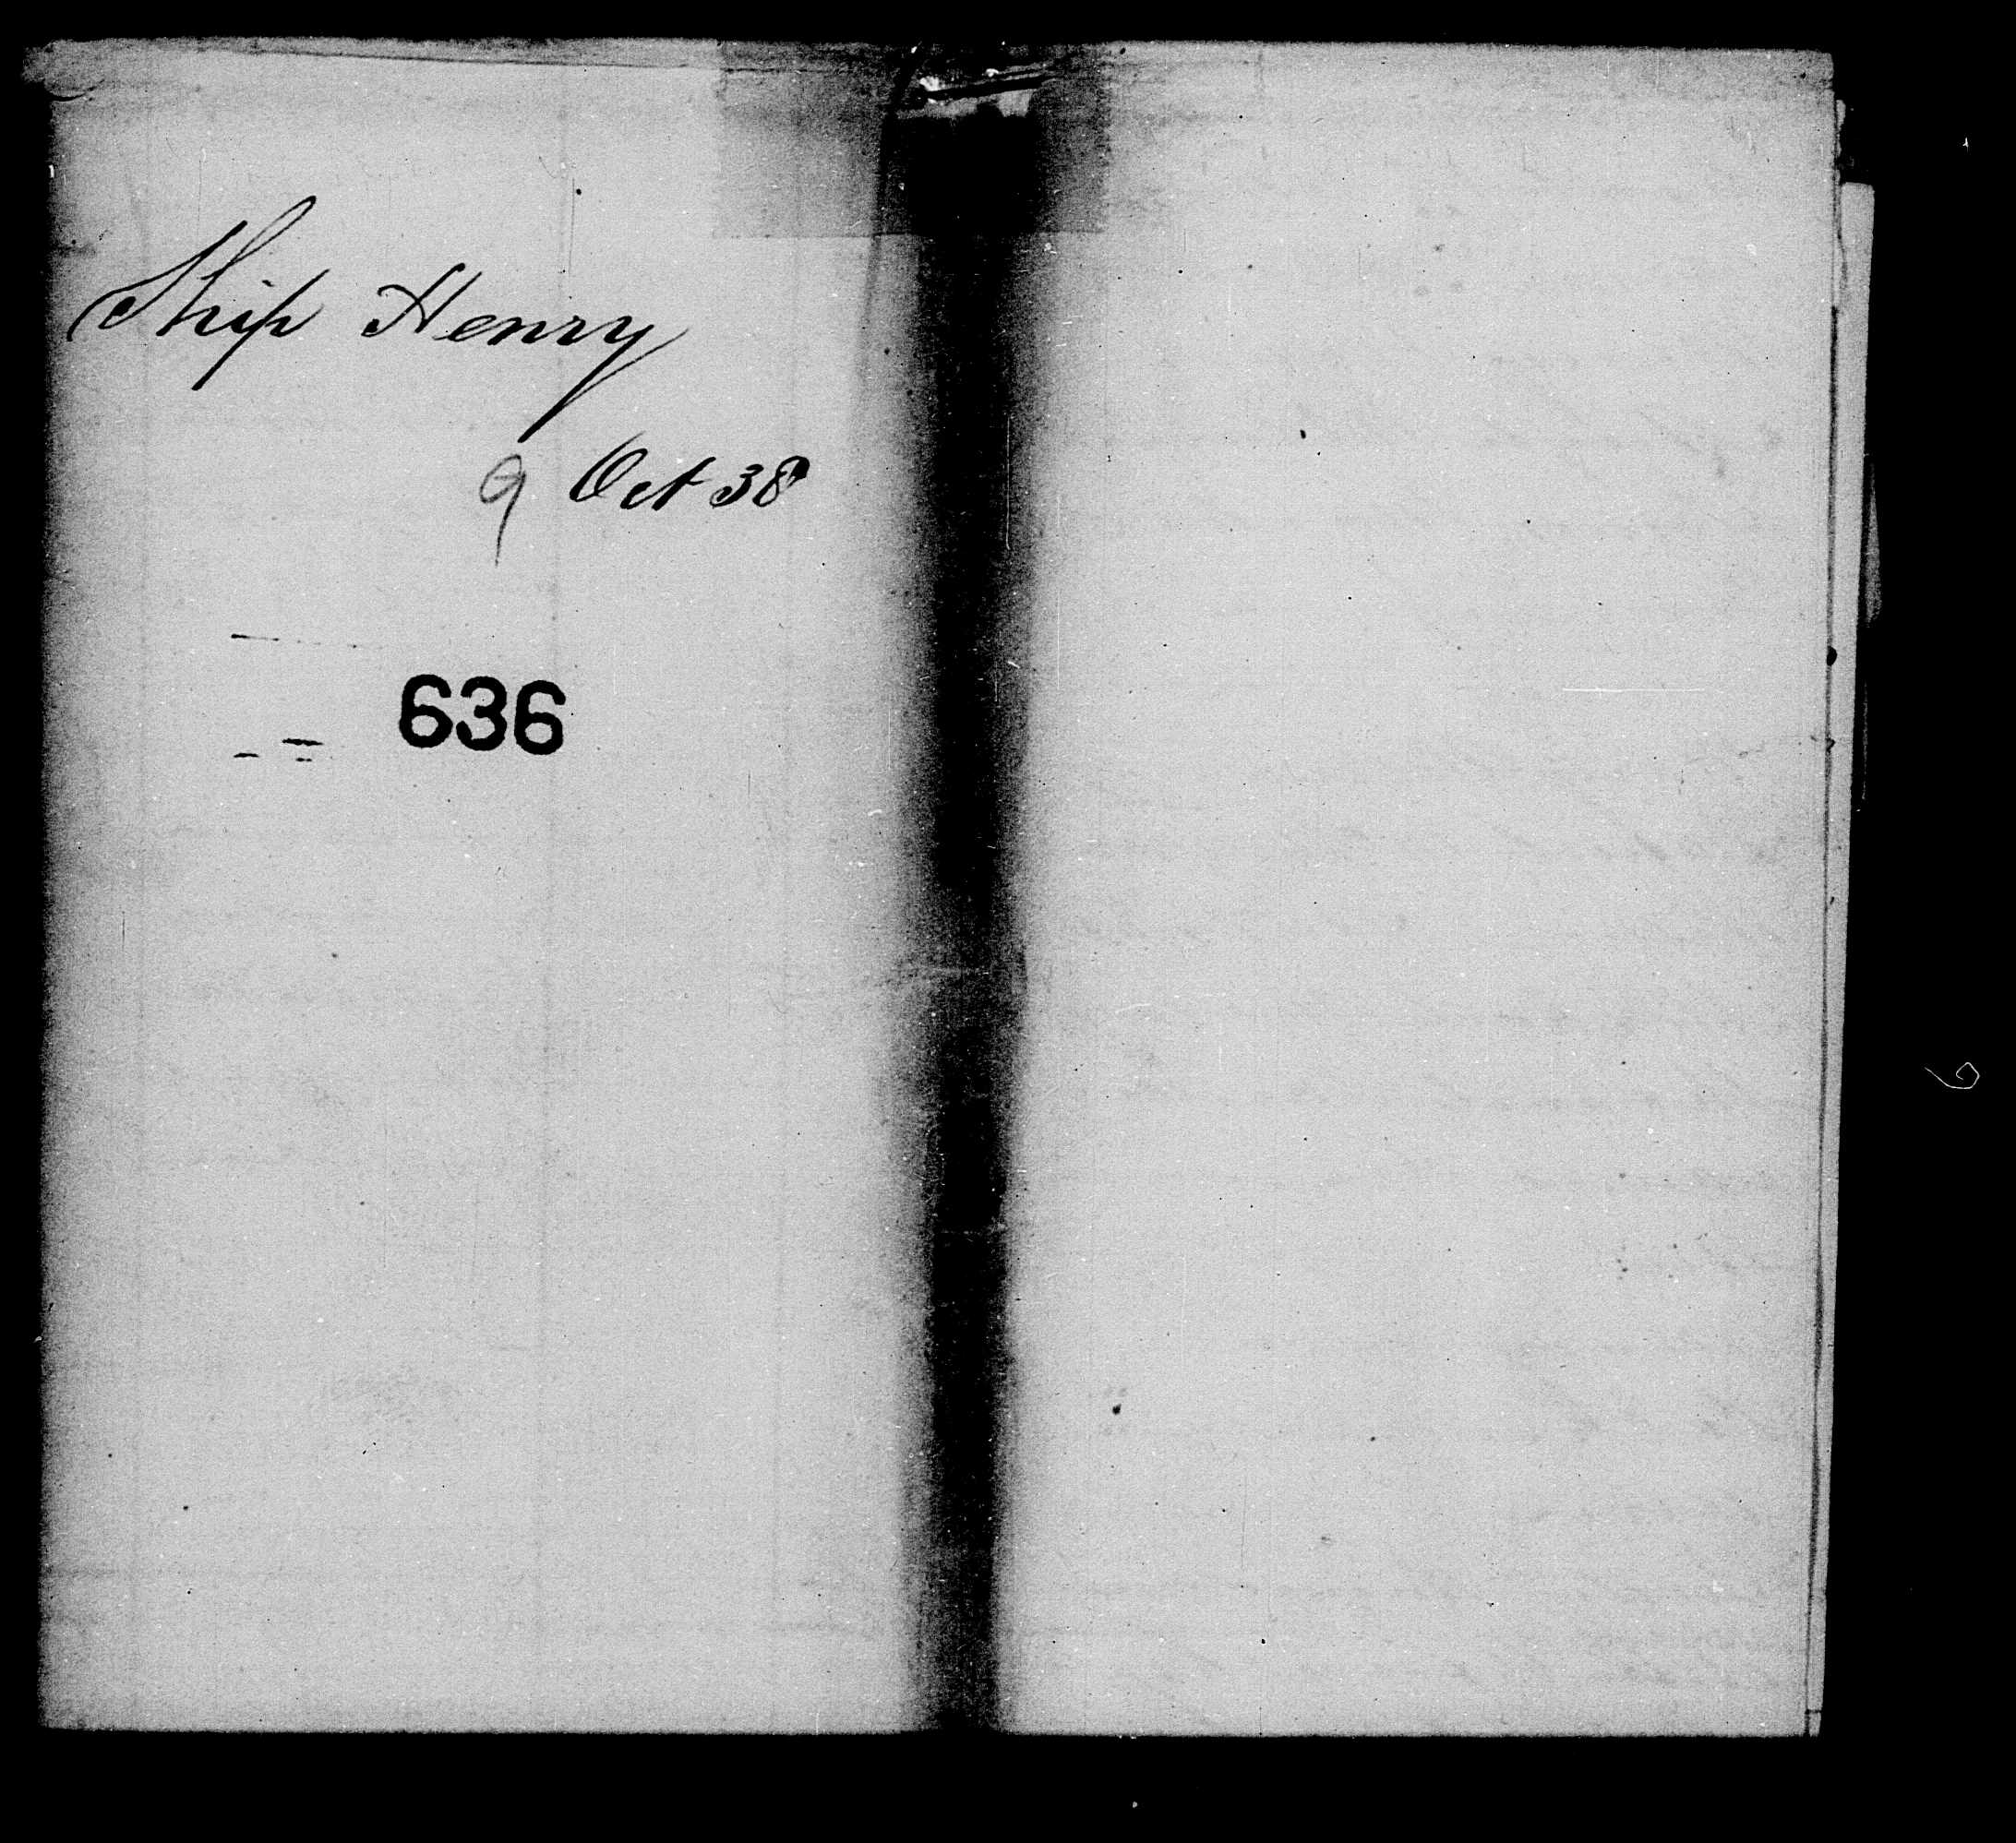 Ship Henry
9 Oct 38
636